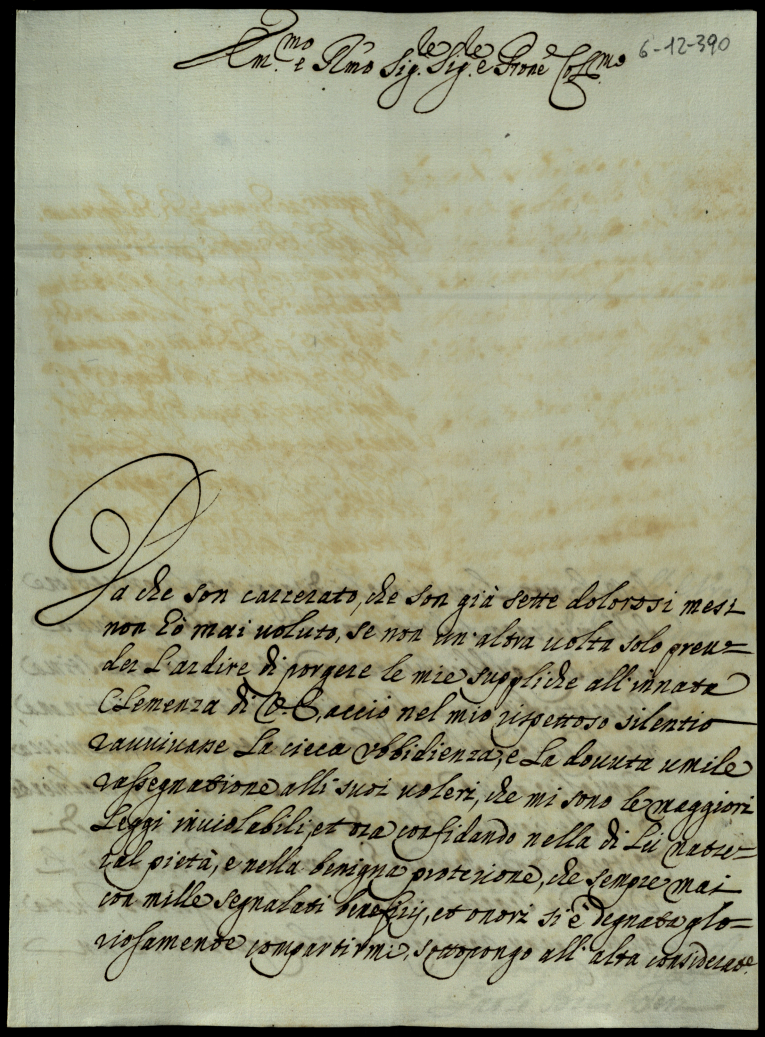 Em.mo e R.mo Sig.le Sig.le e Prone Coll.mo
6-12-390
Da che son carcerato, che son già sette dolorosi mesi
non hò mai voluto, se non un'altra volta solo pren=
der l'ardire di porgere le mie suppliche all'innata
Clemenza di V. E., acciò nel mio rispettoso silentio
ravvivasse la cieca ubbidienza, e la dovuta umile
rassegnatione alli suoi voleri, che mi sono le maggiori
leggi inviolabili, et ora confidando nella di Lei
pietà, e nella benigna protezione, che sempre mai
con mille segnalati beneficij, et onori si è degnata glo=
riosamente compartirmi, sottopongo all'alta considerat.e